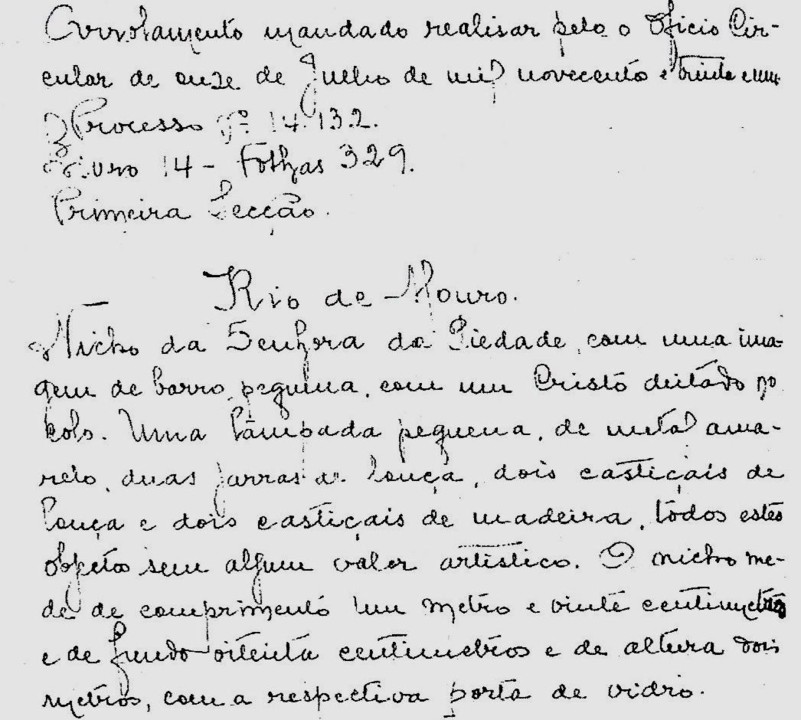 Arrolamento mandado realisar pelo o Oficio Cir-
cular de onze de Julho de mil novecento e trinta e um
Processo nº 14.132.
Livro 14 - Folhas 329.
Primeira Secção.
Rio de Mouro.
Nicho da Senhora da Piedade, com uma ima-
gem de barro, pequena, com um Cristo deitado no
colo. Uma lâmpada pequena, de metal ama-
relo, duas jarras de louça, dois castiçais de
louça e dois castiçais de madeira, todos estes
objetos sem algum valor artistico. O nicho me-
de de comprimento um metro e vinte centimetros
e de fundo oitenta centimetros e de altura dois
metros, com a respectiva porta de vidro.